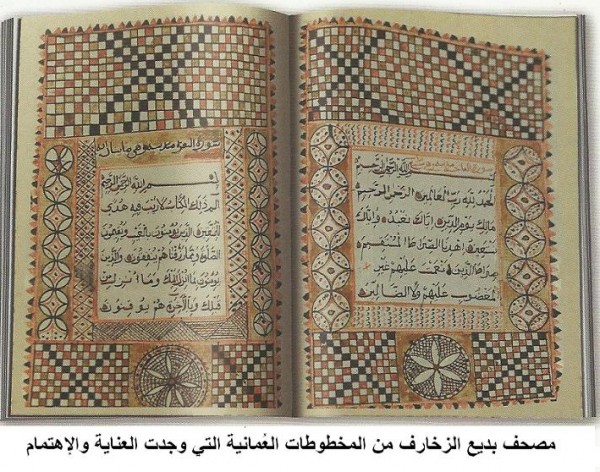 سورة الفاتحة
بسم الله الرحمن الرحيم
الحمد لله رب العالمين الرحمن الرحيم
مالك يوم الدين إياك نعبد وإياك
نستعين إهدنا الصراط المستقيم
صراط الذين أنعمت عليهم غير
المغضوب عليهم ولا الضالين
سورة البقرة مدنية وهي مايتان
بسم الله الرحمن الرحيم
الم ذلك الكتاب لا ريب فيه هدى
للمتقين الذين يؤمنون بالغيب ويقيمون
الصلوة ومما رزقناهم ينفقون والذين
يؤمنون بما أنزل إليك وما أنزل من
قبلك وبالآخرة هم يوقنون
مصحف بديع الزخارف من المخطوطات العُمانية التي وجدت العناية والإهتمام